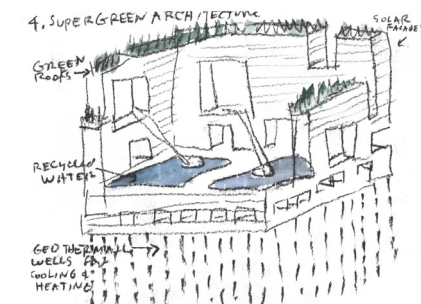 4. SUPERGREEN ARCHITECTURE
SOLAR
FACADES
GREEN
ROOFS
RECYCLED
WATER
GEOTHERMAL
WELLS FOR
COOLING &
HEATING